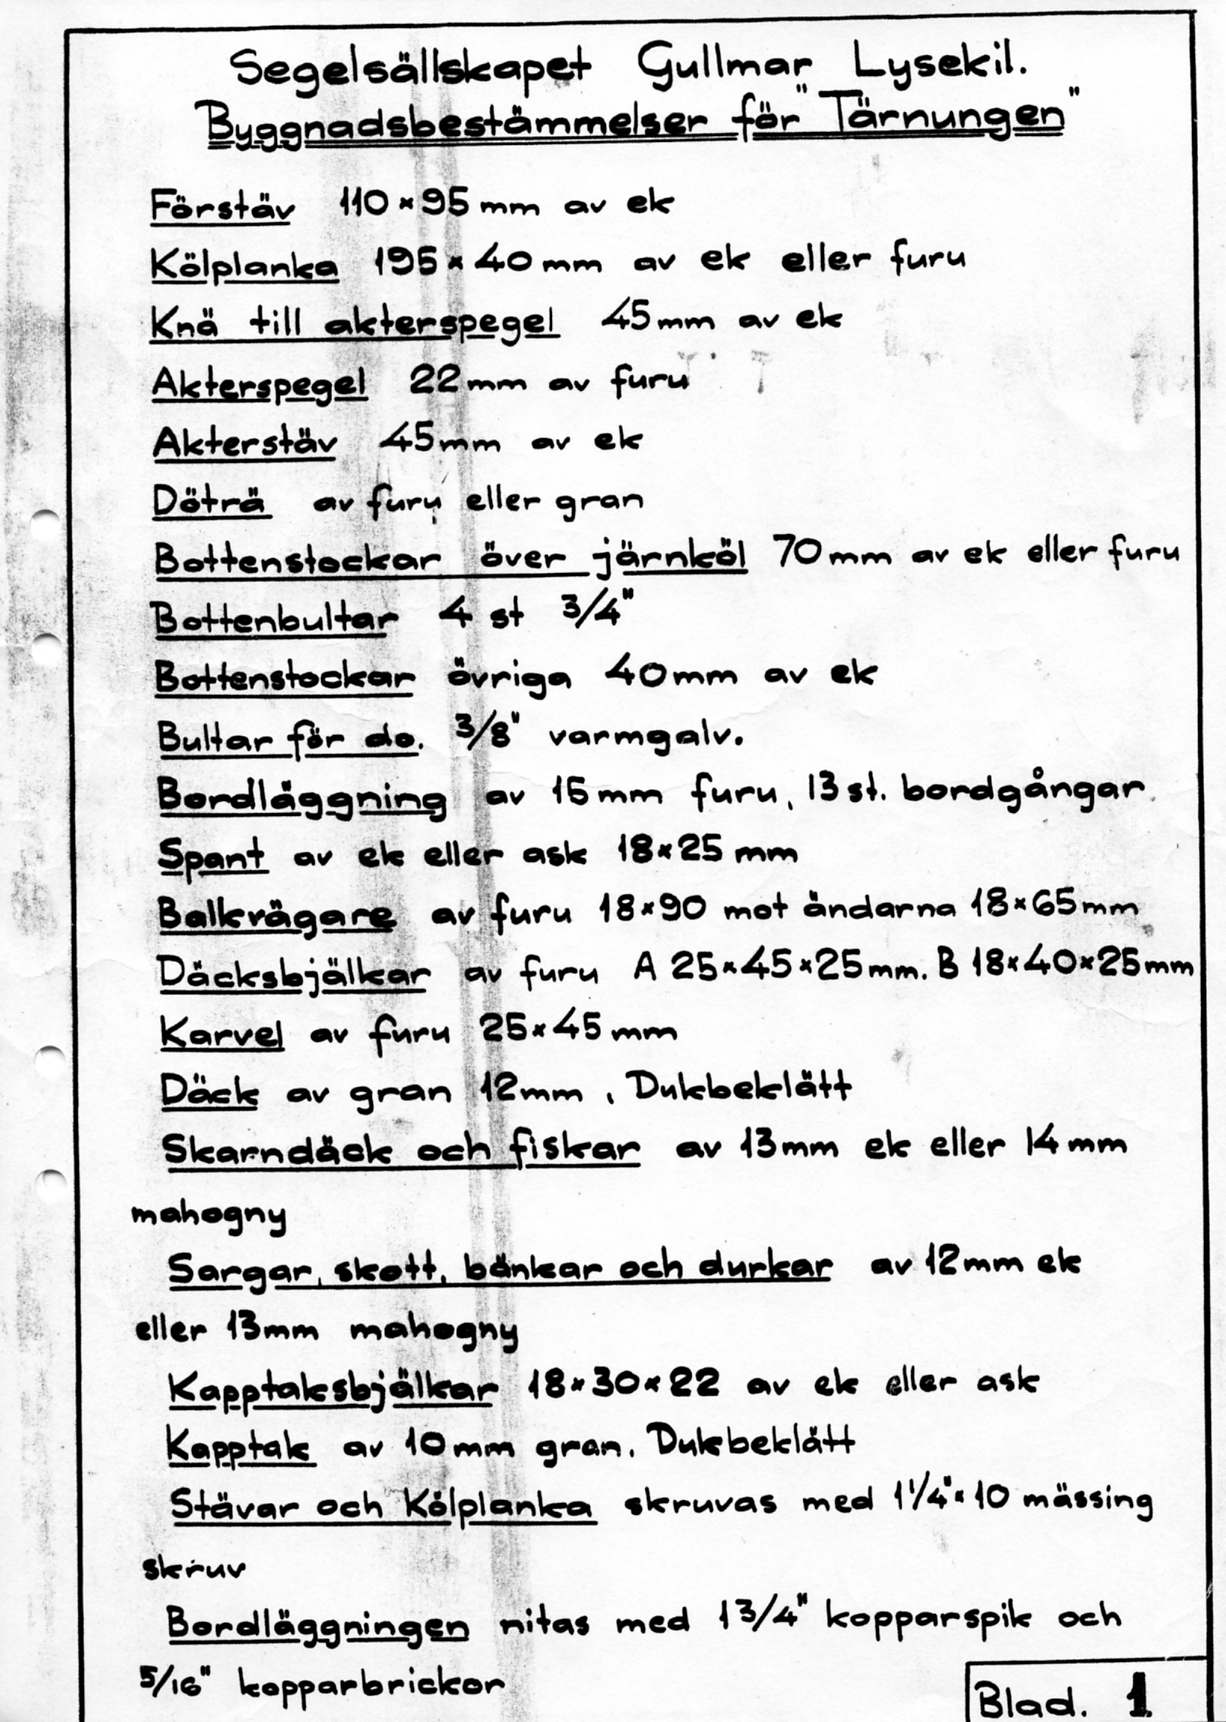 Segelsällskapet Gullmar Lysekil.
Byggnadsbestämmelser för "Tärnungen"
Förstäv 110×95 mm av ek
Kölplanka 195×40 mm av ek eller furu
Knä till akterspegel 45 mm av ek
Akterspegel 22 mm av furu
Akterstäv 45 mm av ek
Döträ av furu eller gran
Bottenstockar över järnköl 70 mm av ek eller furu
Bottenbultar 4 st 3/4"
Bottenstockar övriga 40 mm av ek
Bultar för do. 3/8" varmgalv.
Bordläggning av 15 mm furu, 13 st. bordgångar.
Spant av ek eller ask 18×25 mm
Balkvägare av furu 18×90 mot ändarna 18×65 mm
Däcksbjälkar av furu A 25×45×25 mm. B 18×40×25 mm
Karvel av furu 25×45 mm
Däck av gran 12 mm, Dukbeklätt
Skarndäck och fiskar av 13 mm ek eller 14 mm
mahogny
Sargar, skott, bänkar och durkar av 12 mm ek
eller 13 mm mahogny
Kapptaksbjälkar 18×30×22 av ek eller ask
Kapptak av 10 mm gran. Dukbeklätt
Stävar och Kölplanka skruvas med 1 1/4"×10 mässing
skruv
Bordläggningen nitas med 1 3/4" kopparspik och
5/16" kopparbrickor
Blad. 1